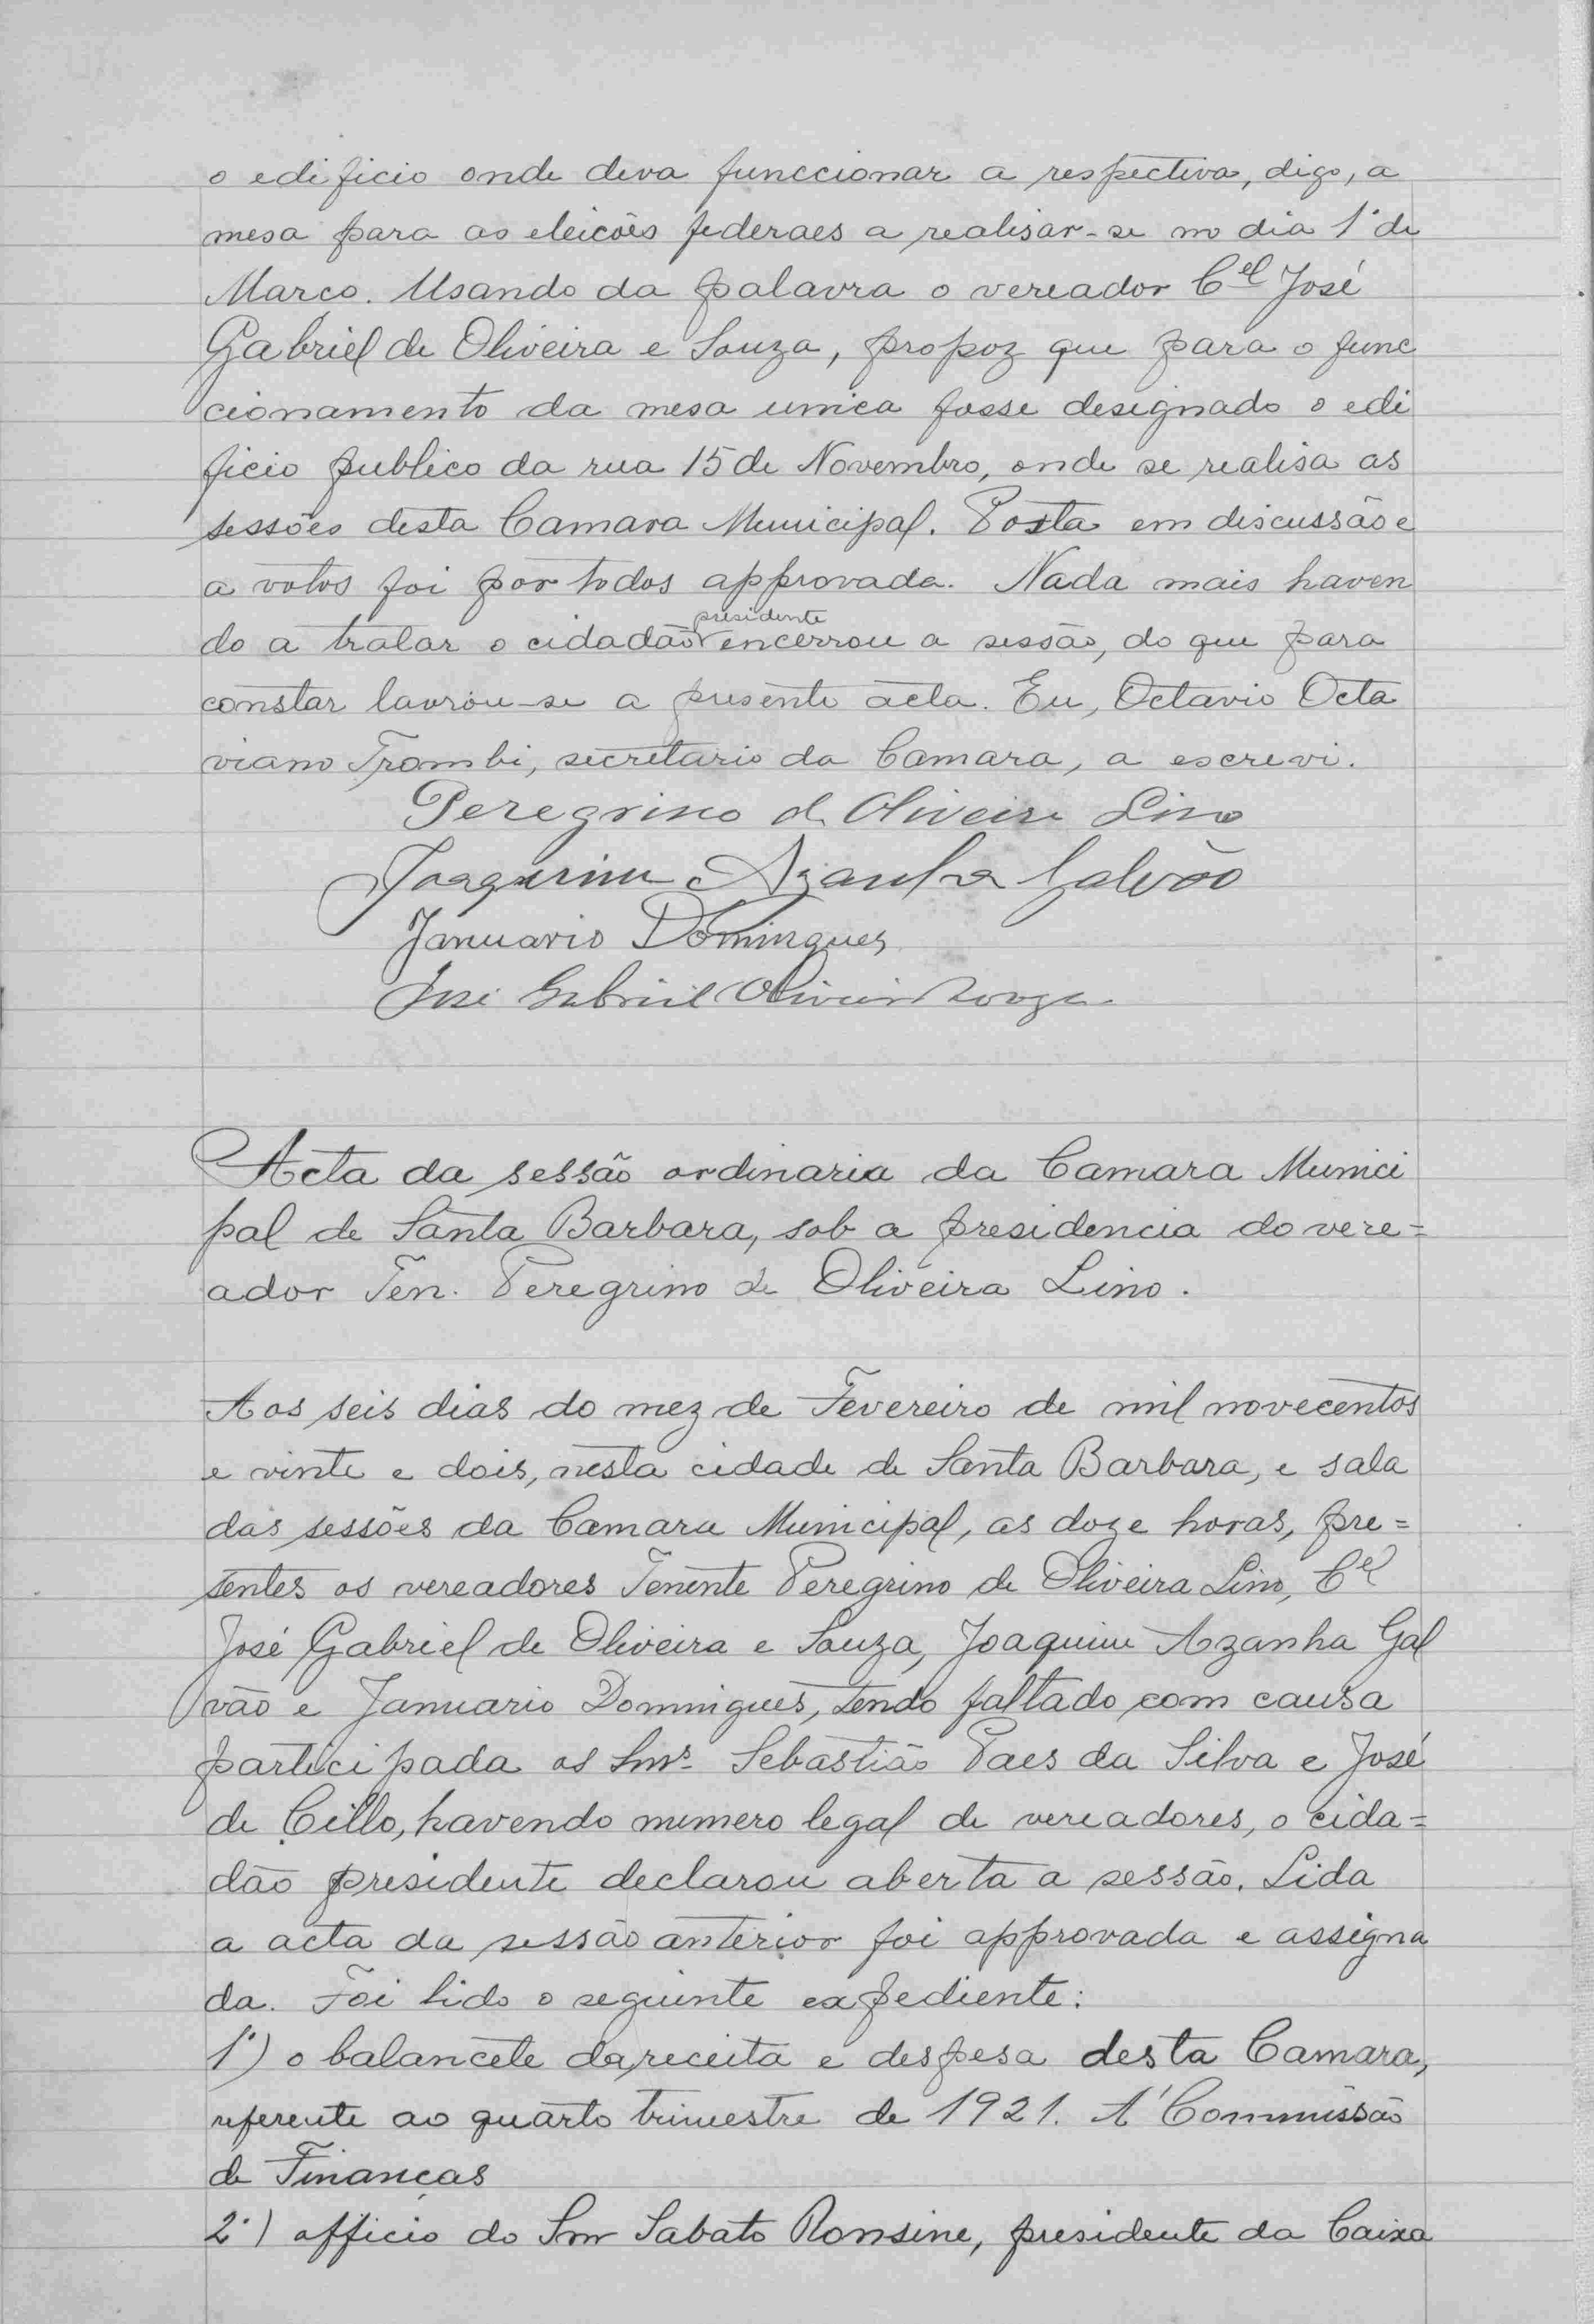 o edificio onde deva funccionar a respectiva, digo, a
mesa para as eleicões federaes a realisar-se no dia 1º de
Março. Usando da palavra o vereador Cel José
Gabriel de Oliveira e Souza, propoz que para o func
cionamento da mesa unica fosse designado o edi
ficio publico da rua 15 de Novembro, onde se realisa as
sessões desta Camara Municipal. Posta em discussão e
a votos foi por todos approvada. Nada mais haven
do a tratar o cidadão presidente encerrou a sessão, do que para
constar lavrou-se a presente acta. Eu, Octavio Octa
viano Trombi, secretario da Camara, a escrevi.
Peregrino de Oliveira Lino
Joaquim Azanha Galvão
Januario Domingues
José Gabriel Oliveira Souza
Acta da sessão ordinaria da Camara Munici
pal de Santa Barbara, sob a presidencia do vere=
ador Ten. Peregrino de Oliveira Lino.
Aos seis dias do mez de Fevereiro de mil novecentos
e vinte e dois, nesta cidade de Santa Barbara, e sala
das sessões da Camara Municipal, as doze horas, pre=
sentes os vereadores Tenente Peregrino de Oliveira Lino, Cel
José Gabriel de Oliveira e Souza, Joaquim Azanha Gal
vão e Januario Domingues, tendo faltado com causa
participada os Snrs. Sebastião Paes da Silva e José
de Cillo, havendo numero legal de vereadores, o cida=
dão presidente declarou aberta a sessão. Lida
a acta da sessão anterior foi approvada e assigna
da. Foi lido o seguinte expediente:
1º) o balancete da receita e despesa desta Camara,
referente ao quarto trimestre de 1921. A' Commissão
de Finanças
2º) officio do Snr Sabato Ronsine, presidente da Caixa